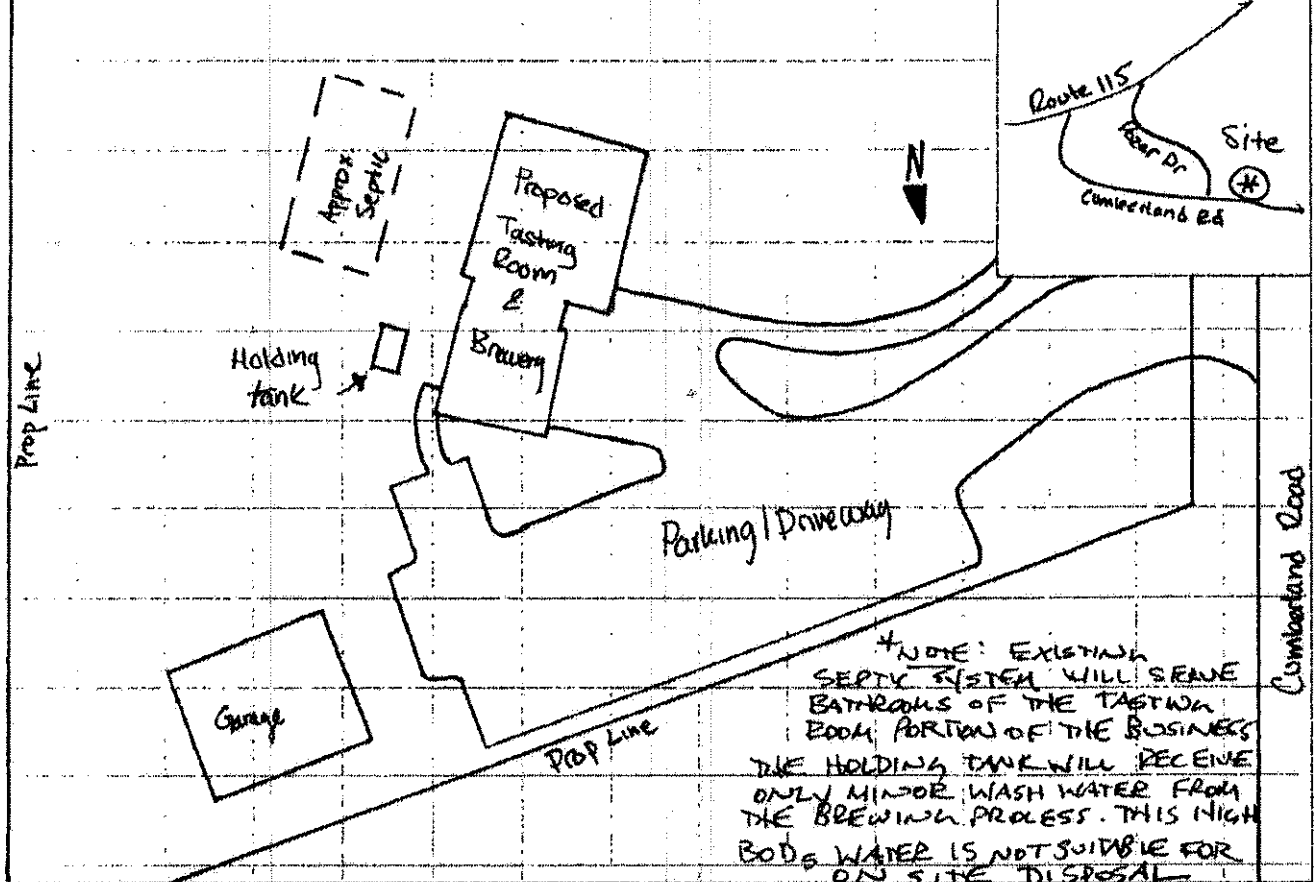 Route 115
Site
Cumberland Rd
N
Approx.
Septic
Proposed
Tasting
Room
&
Brewery
Holding
tank
Prop Line
Parking/Driveway
Cumberland Road
Garage
Prop Line
*NOTE: EXISTING
SEPTIC SYSTEM WILL SERVE
BATHROOMS OF THE TASTING
ROOM PORTION OF THE BUSINESS
THE HOLDING TANK WILL RECEIVE
ONLY MINOR WASH WATER FROM
THE BREWING PROCESS. THIS HIGH
BOD5 WATER IS NOT SUITABLE FOR
ON SITE DISPOSAL